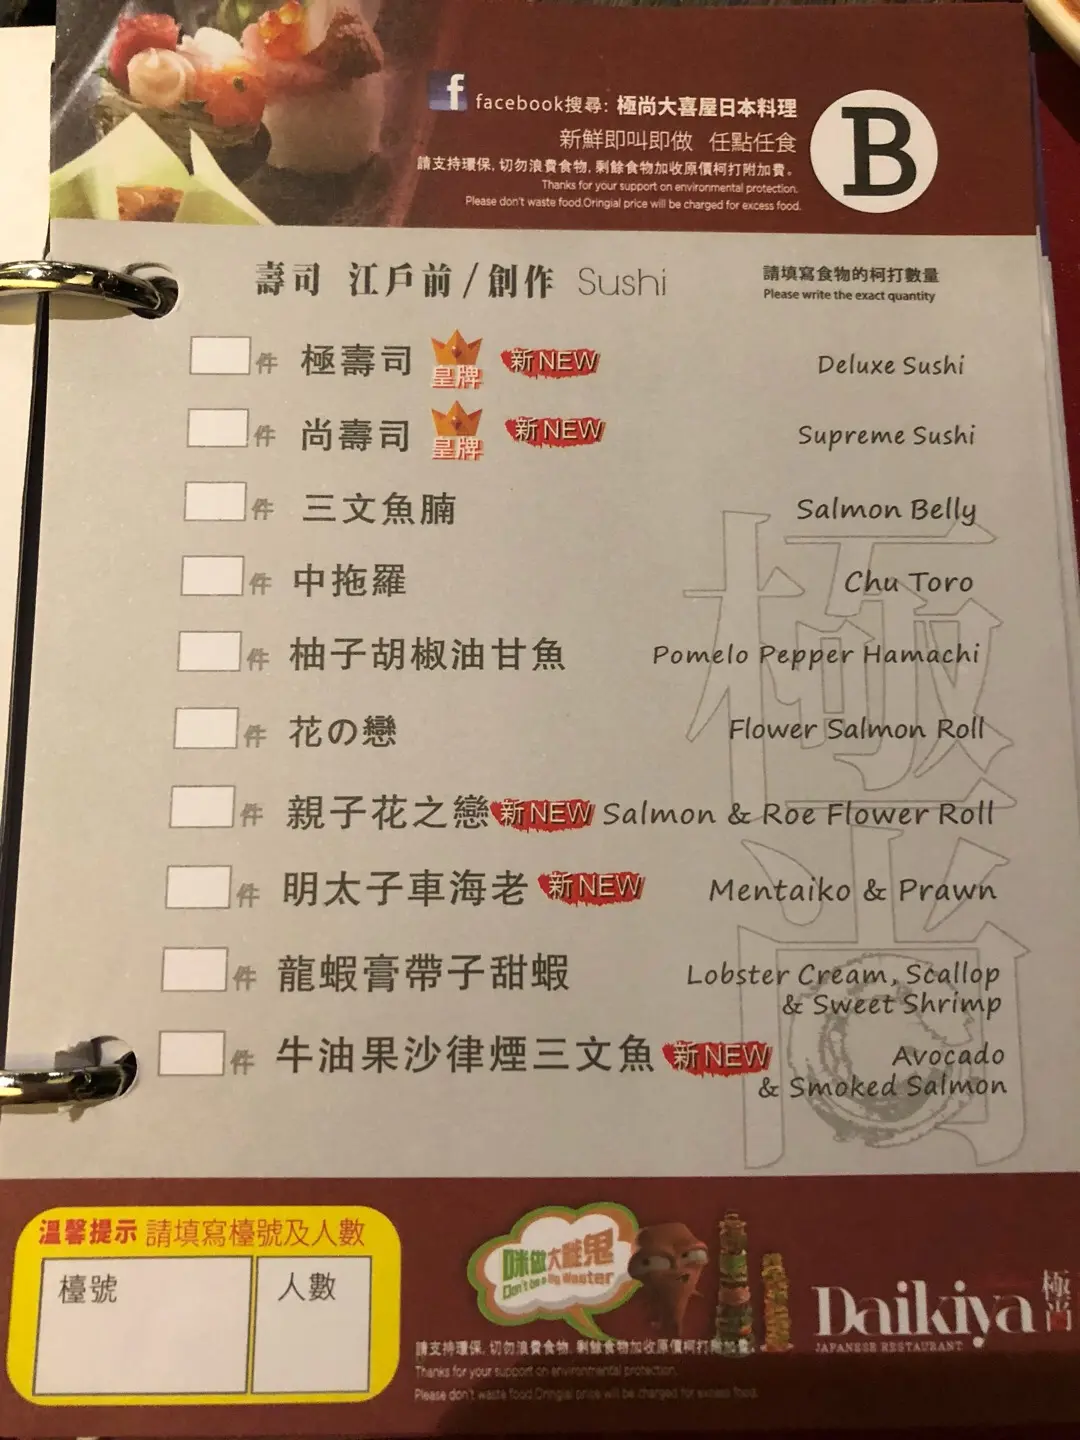 facebook搜尋: 極尚大喜屋日本料理
新鮮即叫即做 任點任食
請支持環保, 切勿浪費食物, 剩餘食物加收原價柯打附加費。
Thanks for your support on environmental protection.
Please don't waste food.Oringial price will be charged for excess food.
B
壽司 江戶前/創作 Sushi
請填寫食物的柯打數量
Please write the exact quantity
件 極壽司 皇牌 新NEW Deluxe Sushi
件 尚壽司 皇牌 新NEW Supreme Sushi
件 三文魚腩 Salmon Belly
件 中拖羅 Chu Toro
件 柚子胡椒油甘魚 Pomelo Pepper Hamachi
件 花の戀 Flower Salmon Roll
件 親子花之戀 新NEW Salmon & Roe Flower Roll
件 明太子車海老 新NEW Mentaiko & Prawn
件 龍蝦膏帶子甜蝦 Lobster Cream, Scallop
& Sweet Shrimp
件 牛油果沙律煙三文魚 新NEW Avocado
& Smoked Salmon
極尚
溫馨提示 請填寫檯號及人數
檯號 人數
咪做大嘥鬼
Don't be a Big Waster
請支持環保, 切勿浪費食物, 剩餘食物加收原價柯打附加費。
Thanks for your support on environmental protection.
Please don't waste food.Oringial price will be charged for excess food.
Daikiya 極尚
JAPANESE RESTAURANT